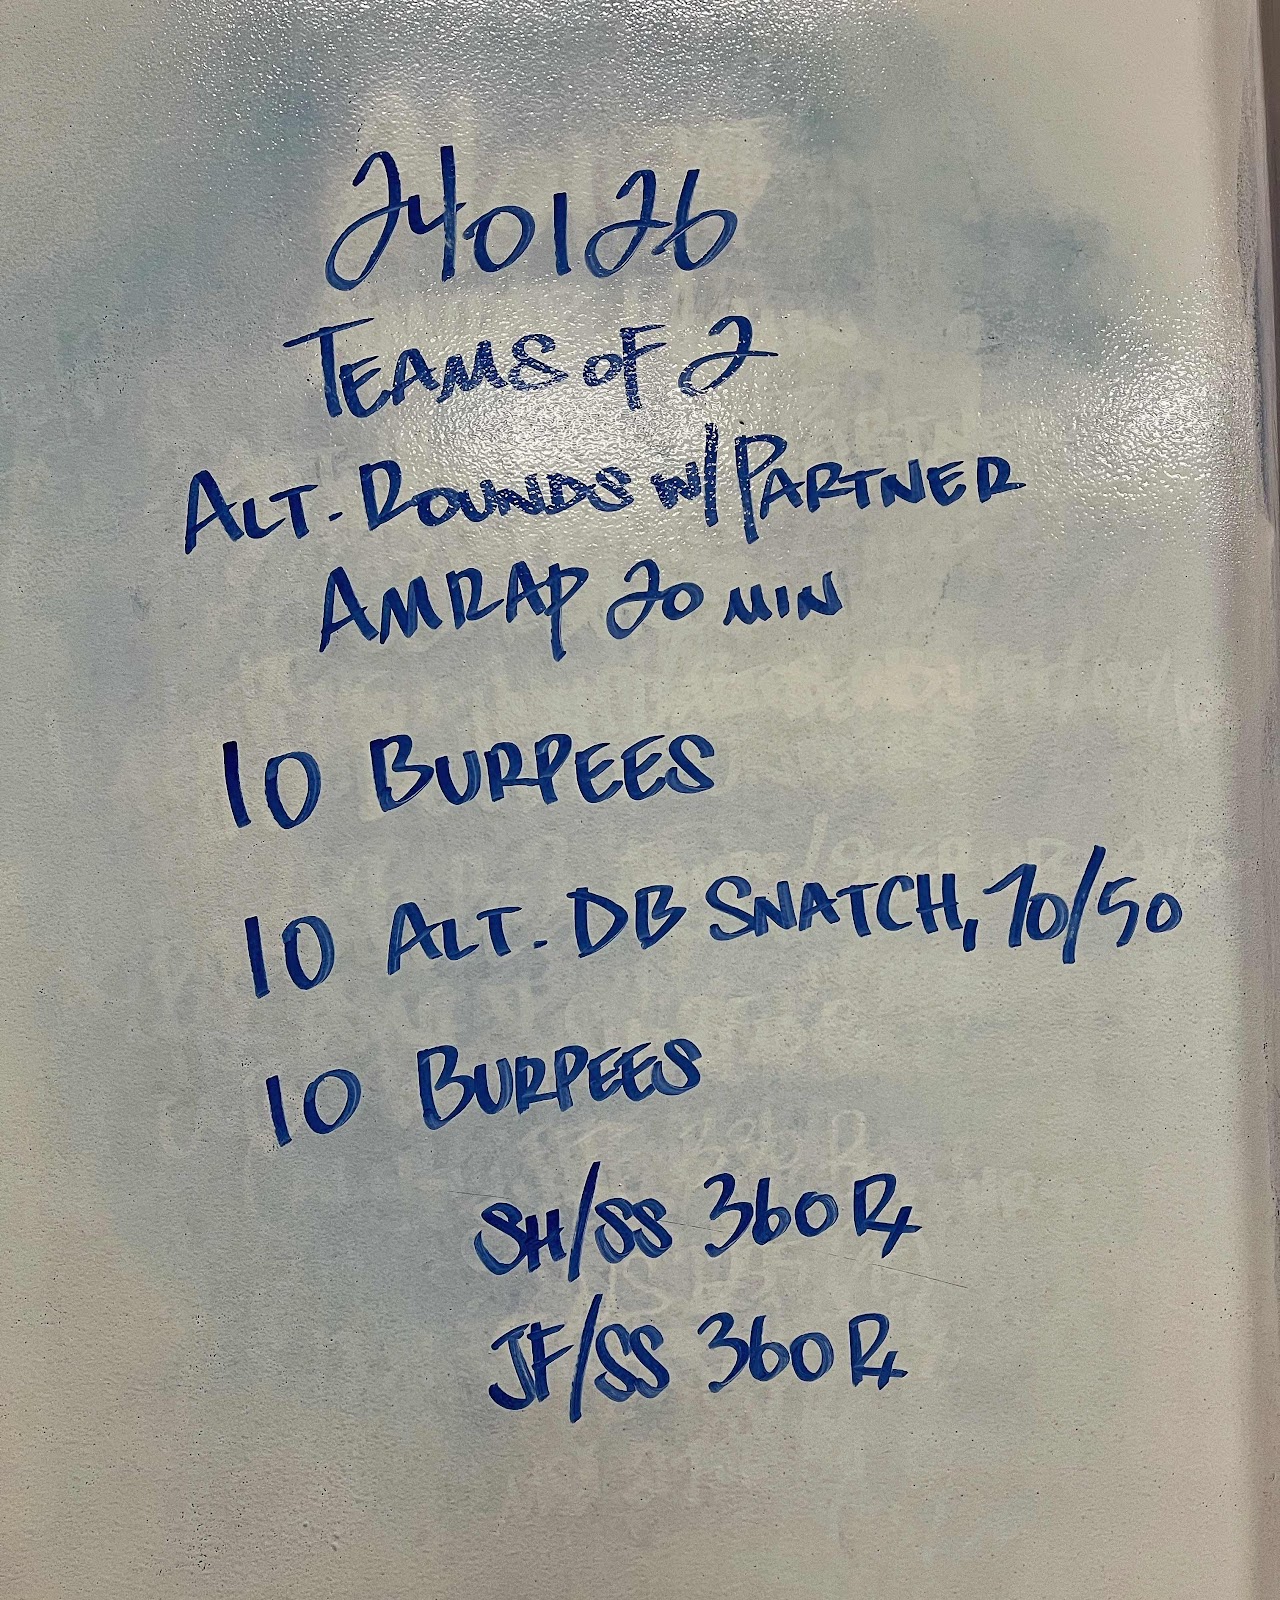 240126
TEAMS OF 2
ALT. ROUNDS W/ PARTNER
AMRAP 20 MIN
10 BURPEES
10 ALT. DB SNATCH, 70/50
10 BURPEES
SH/SS 360 Rx
JF/SS 360 Rx